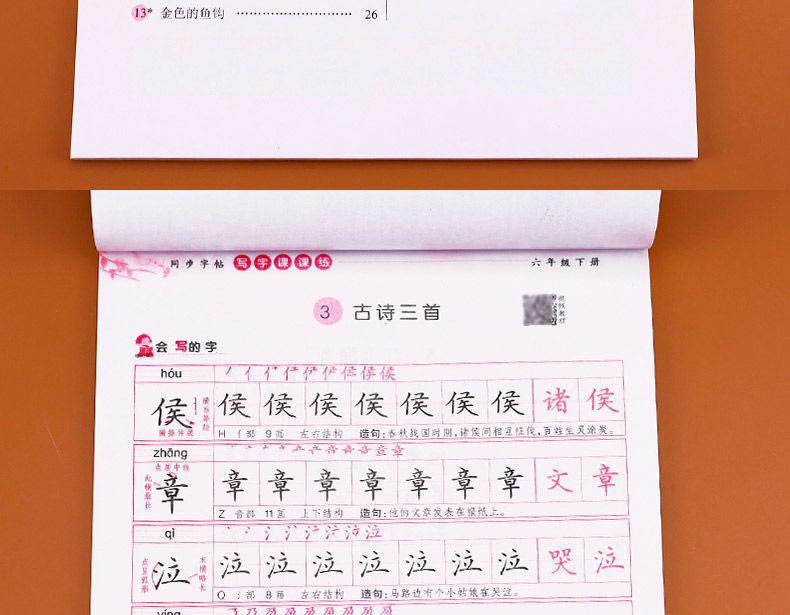 13* 金色的鱼钩 ………………………… 26
同步字帖 写字课课练 六年级下册
3 古诗三首
视频教程
会写的字
hóu
侯 侯 侯 侯 侯 侯 侯 侯 诸 侯
H 亻部 9画 左右结构 造句:春秋战国时期,诸侯间相互征伐,百姓生灵涂炭。
zhāng
点居中线
此横最长
章 章 章 章 章 章 章 章 文 章
Z 音部 11画 上下结构 造句:他的文章发表在报纸上。
qì
点呈弧形
末横略长
泣 泣 泣 泣 泣 泣 泣 泣 哭 泣
Q 氵部 8画 左右结构 造句:马路边有个小姑娘在哭泣。
yíng